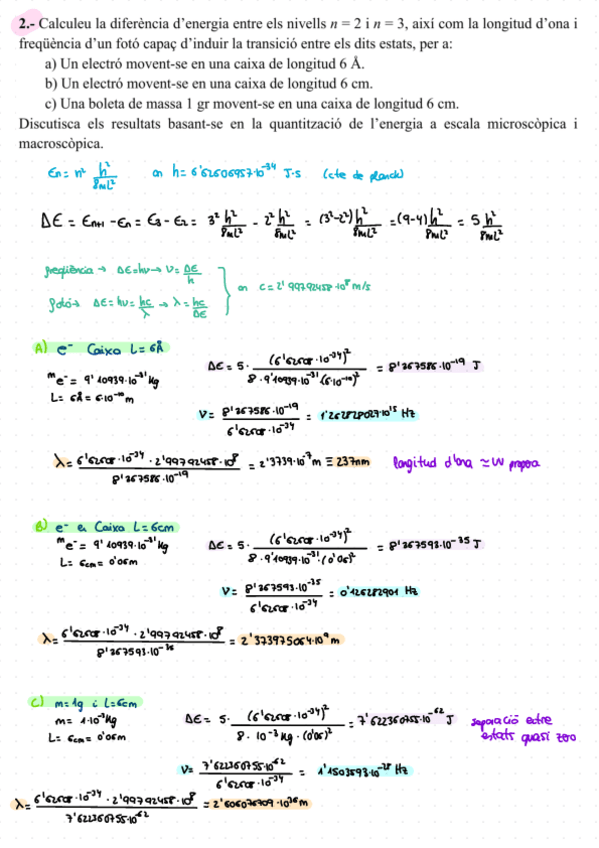 2.- Calculeu la diferència d'energia entre els nivells n = 2 i n = 3, així com la longitud d'ona i
freqüència d'un fotó capaç d'induir la transició entre els dits estats, per a:
a) Un electró movent-se en una caixa de longitud 6 Å.
b) Un electró movent-se en una caixa de longitud 6 cm.
c) Una boleta de massa 1 gr movent-se en una caixa de longitud 6 cm.
Discutisca els resultats basant-se en la quantització de l'energia a escala microscòpica i
macroscòpica.
En = n² h²/8mL² on h = 6'62606957·10⁻³⁴ J·s (cte de planck)
ΔE = En+1 - En = E3 - E2 = 3² h²/8mL² - 2² h²/8mL² = (3²-2²) h²/8mL² = (9-4) h²/8mL² = 5 h²/8mL²
freqüència → ΔE = hν → ν = ΔE/h
fotó → ΔE = hν = hc/λ → λ = hc/ΔE } on c = 2'99792458·10⁸ m/s
A) e⁻ Caixa L = 6Å
ΔE = 5 · (6'6260·10⁻³⁴)² / 8·9'10939·10⁻³¹(6·10⁻¹⁰)² = 8'367586·10⁻¹⁹ J
me⁻ = 9'10939·10⁻³¹ kg
L = 6Å = 6·10⁻¹⁰ m
ν = 8'367586·10⁻¹⁹ / 6'6260·10⁻³⁴ = 1'262828027·10¹⁵ Hz
λ = 6'6260·10⁻³⁴ · 2'99792458·10⁸ / 8'367586·10⁻¹⁹ = 2'3739·10⁻⁷ m ≡ 237nm longitud d'ona ≃ UV propera
B) e⁻ en Caixa L = 6cm
me⁻ = 9'10939·10⁻³¹ kg ΔE = 5 · (6'6260·10⁻³⁴)² / 8·9'10939·10⁻³¹·(0'06)² = 8'367593·10⁻³⁵ J
L = 6cm = 0'06m
ν = 8'367593·10⁻³⁵ / 6'6260·10⁻³⁴ = 0'126282901 Hz
λ = 6'6260·10⁻³⁴ · 2'99792458·10⁸ / 8'367593·10⁻³⁵ = 2'373975064·10⁹ m
C) m = 1g i L = 6cm
m = 1·10⁻³ kg ΔE = 5 · (6'6260·10⁻³⁴)² / 8·10⁻³ kg·(0'06)² = 7'622360755·10⁻⁶² J separació entre
L = 6cm = 0'06m estats quasi zero
ν = 7'622360755·10⁻⁶² / 6'6260·10⁻³⁴ = 1'1503593·10⁻²⁸ Hz
λ = 6'6260·10⁻³⁴ · 2'99792458·10⁸ / 7'622360755·10⁻⁶² = 2'606076709·10³⁶ m